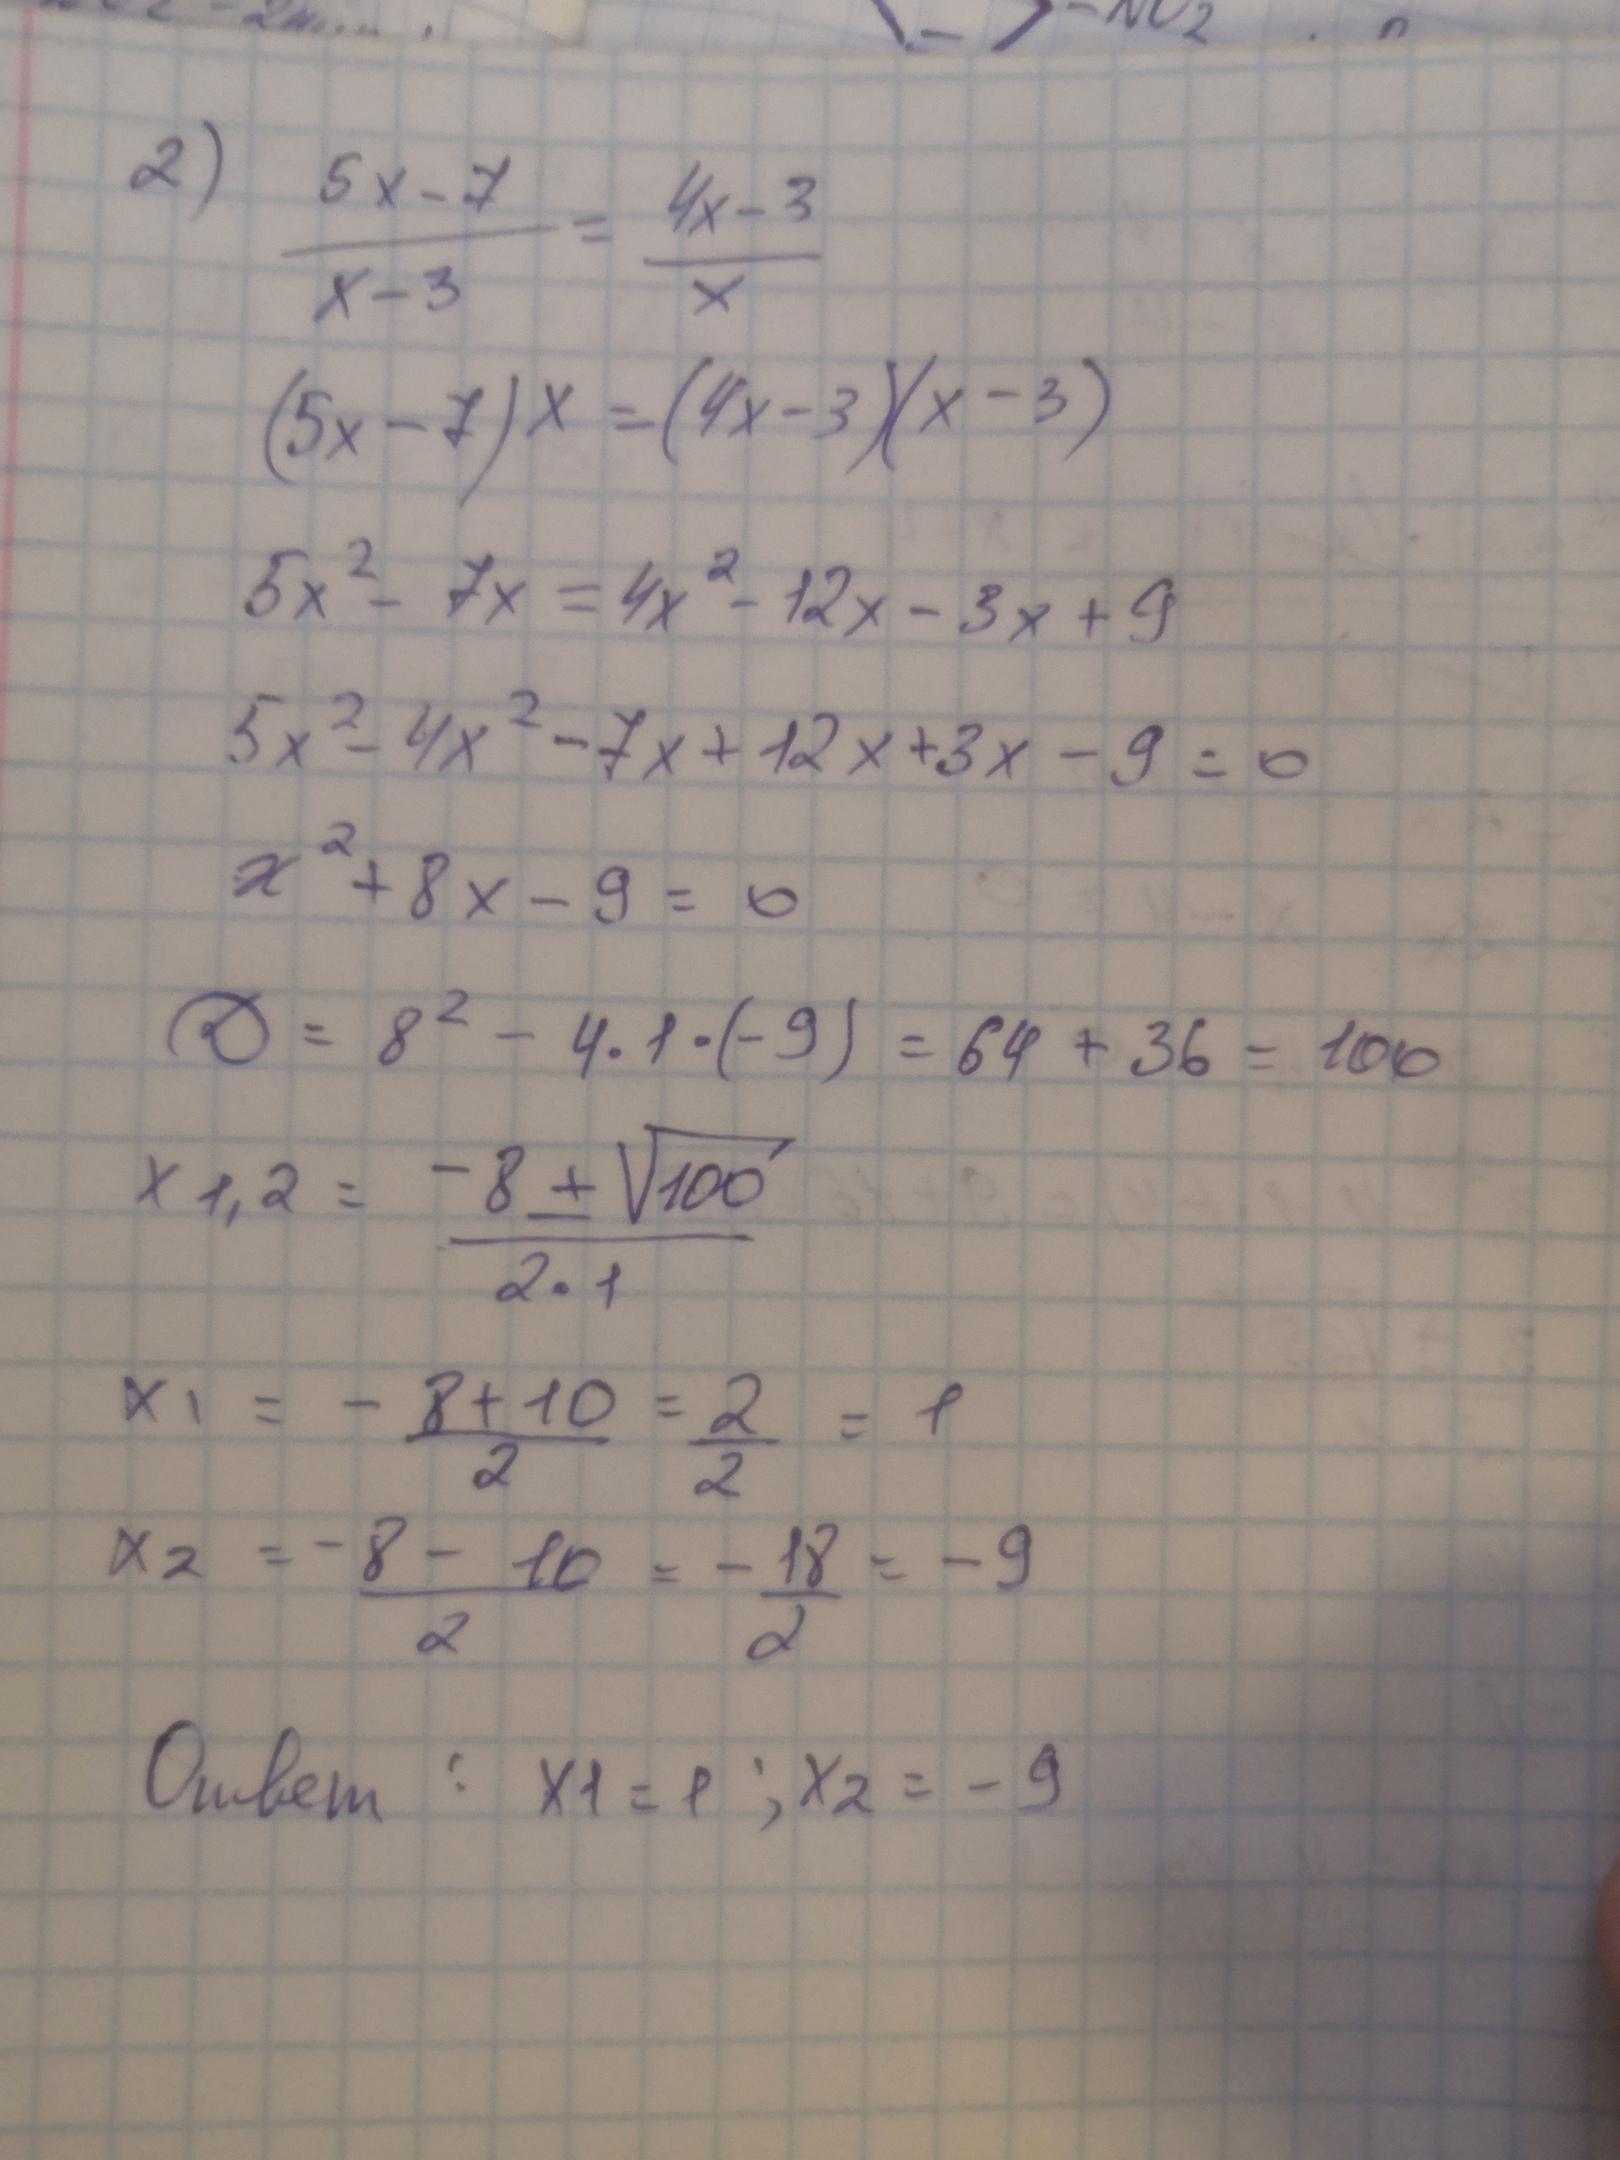 -NO2
2) (5x-7)/(x-3) = (4x-3)/x
(5x-7)x = (4x-3)(x-3)
5x² - 7x = 4x² - 12x - 3x + 9
5x² - 4x² - 7x + 12x + 3x - 9 = 0
x² + 8x - 9 = 0
D = 8² - 4·1·(-9) = 64 + 36 = 100
x1,2 = (-8 ± √100)/(2·1)
x1 = -(8+10)/2 = 2/2 = 1
x2 = -(8-10)/2 = -18/2 = -9
Ответ : x1 = 1 ; x2 = -9